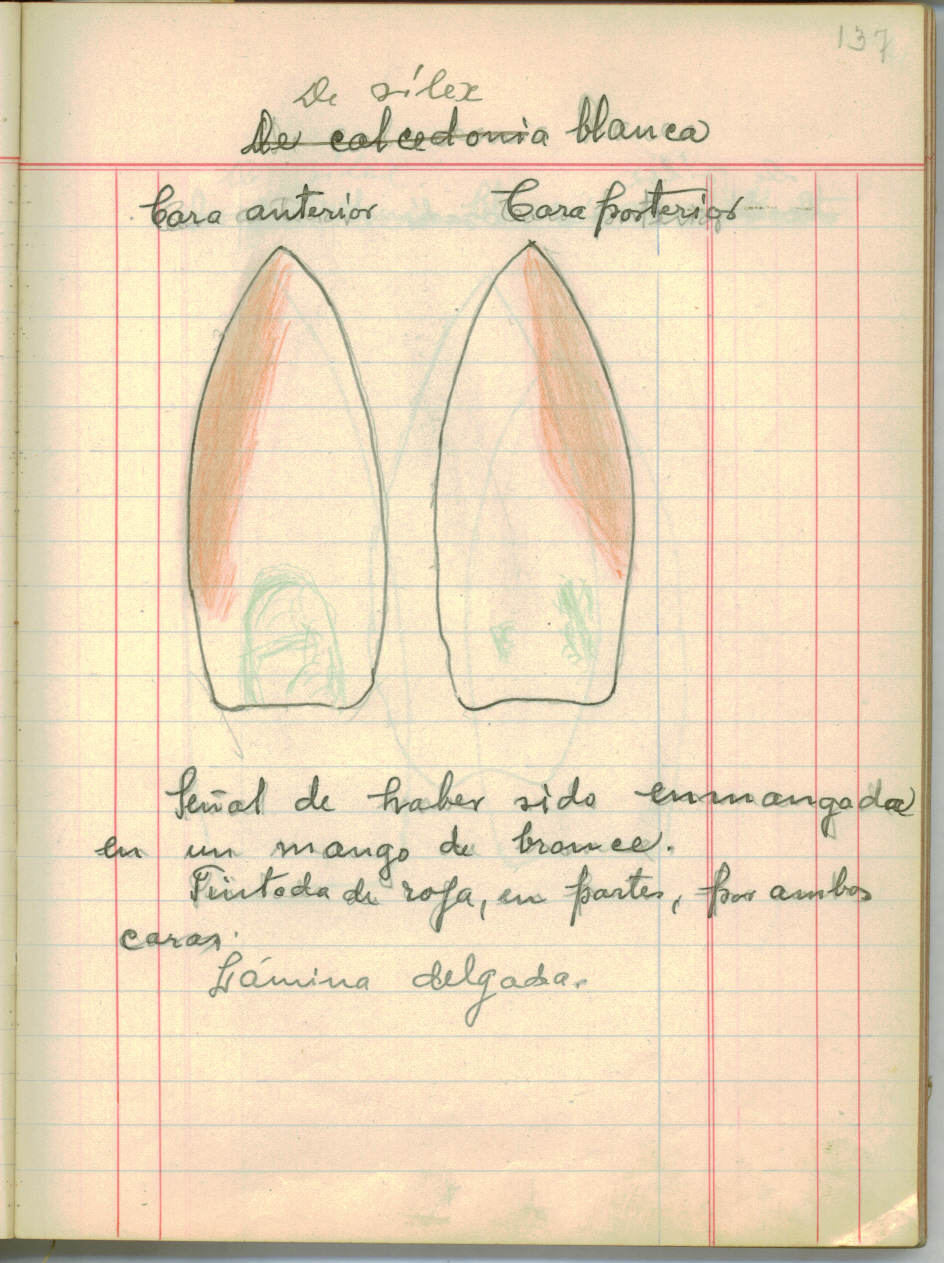 137
De sílex
De calcedonia blanca
Cara anterior Cara posterior
Señal de haber sido enmangada
en un mango de bronce.
Tintada de roja, en partes, por ambas
caras.
Lámina delgada.